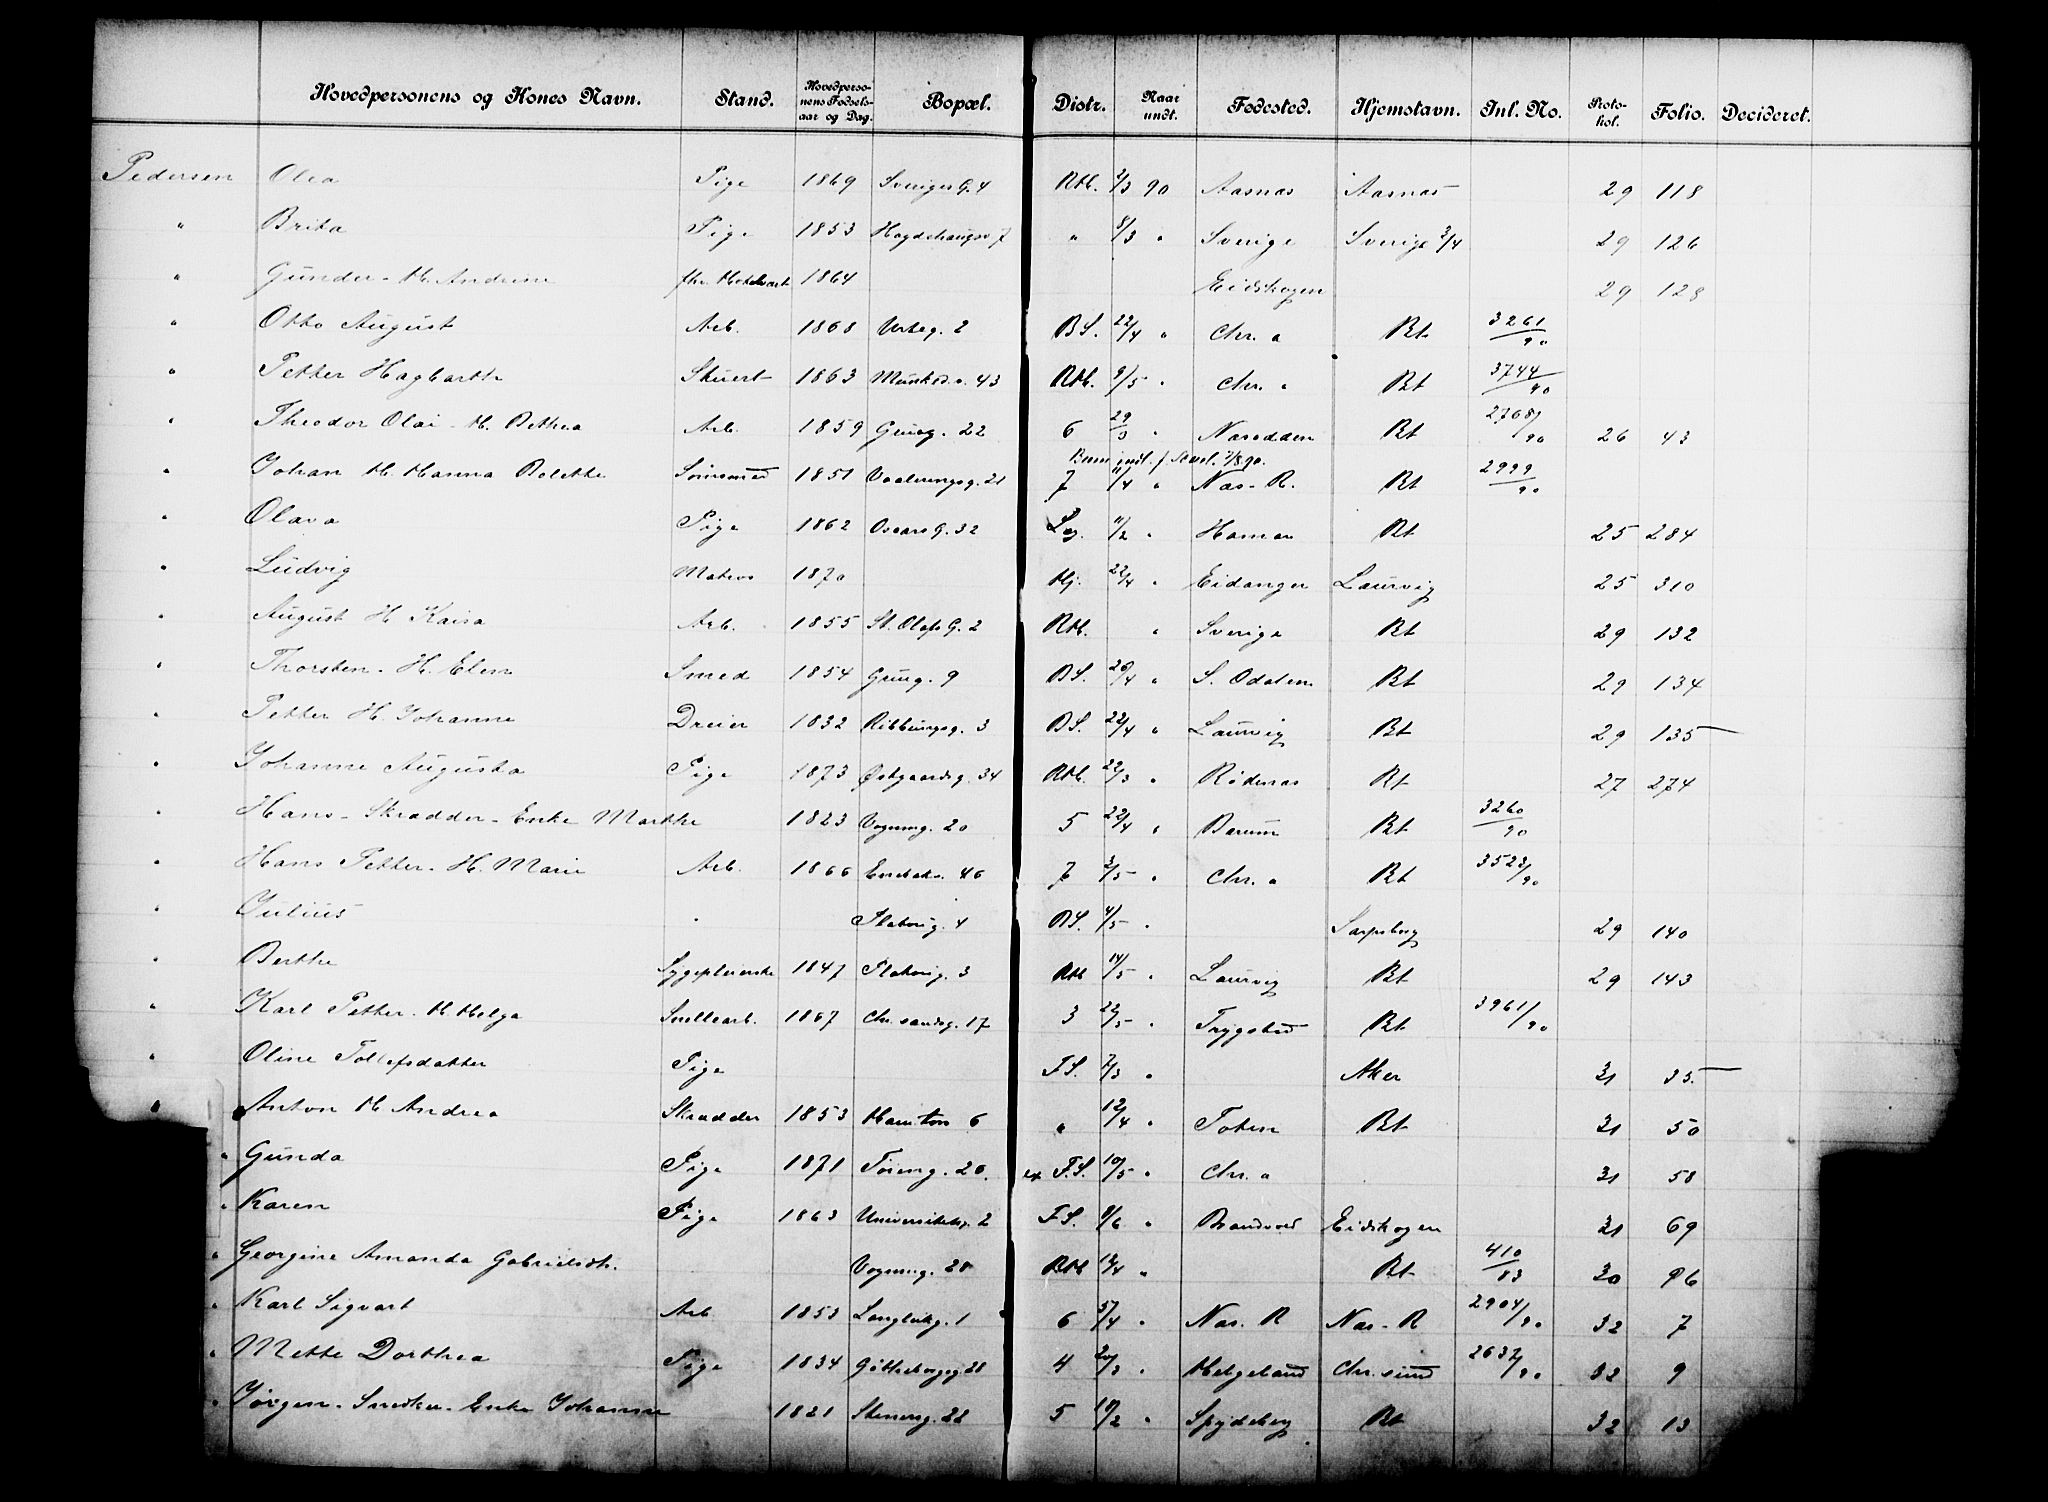 Hovedpersonens og Kones Navn. Stand. Hovedpersonens Fødselsaar og Dag. Bopæl. Distr. Naar undt. Fødested. Hjemstavn. Inl. No. Protokol. Folio. Decideret.
Pedersen Olea Pige 1869 Sveriges G. 4 RH. 2/3 90 Aasnæs Aasnæs 29 118
" Brita Pige 1853 7 " 8/3 " Sverige Sverige 2/4 29 126
" Gunder - H. Andrine 1864 Eidskogen 29 128
" Otto August Arb. 1868 Urteg. 2 BS. 22/4 " Chr. a Bt 3261/90
" Petter Hagbarth Stuert 1863 43 RH. 9/5 " Chr. a Bt 3744/90
" Theodor Olai - H. Bethea Arb. 1859 Grueg. 22 6 29/3 " Næsodden Bt 2768/90 26 43
" Johan H. Hanna Bolette 1851 Vaalerengsg. 21 7 11/4 " Næs - R. Bt 2999/90
" Olava Pige 1862 Oscars G. 32 Lg. 11/2 " Hamar Bt 25 284
" Ludvig Matros 1870 Hj. 22/4 " Eidanger Laurvig 25 310
" August H. Kaisa Arb. 1855 St. Olafs G. 2 RH. " Sverige Bt 29 132
" Thorsten - H. Elen Smed 1854 Grueg. 9 BS. 20/4 " S. Odalen Bt 29 134
" Petter H. Johanne Dreier 1832 Ribbungsg. 3 BS. 22/4 " Laurvig Bt 29 135
" Johanne Augusta Pige 1873 Østgaardsg. 34 RH. 22/3 " Rødenæs Bt 27 274
" Hans - Skrædder - Enke Marthe 1823 Vognmg. 20 5 22/4 " Bærum Bt 3260/90
" Hans Petter - H. Marie Arb. 1866 46 7 3/5 " Chr. a Bt 3523/90
" Julius " Platoug. 4 BS. 4/5 " Sarpsborg 29 140
" Berthe Sygepleierske 1847 Platoug. 3 RH 14/5 " Laurvig Bt 29 143
" Karl Petter - H. Helga 1867 Chr. sandsg. 17 3 22/5 " Trygstad Bt 3961/90
" Oline Tollefsdatter Pige F.S. 7/3 " Aker 31 35
" Anton H. Andrea Skrædder 1853 6 " 12/4 " Toten Bt 31 50
" Gunda Pige 1871 Tøieng. 20. F.S. 10/5 " Chr. a 31 58
" Karen Pige 1863 Universitetsg. 2 F.S. 9/6 " Brandvold Eidskogen 31 69
" Georgine Amanda Gabrielsdt. Vognmg. 20 RH " Bt 410/83 30 96
" Karl Sigvart Arb 1853 Langleikg. 1 6 " Næs. R Næs - R 2904/90 32 7
" Mette Dorthea Pige 1834 Gøtheborgsg 28 4 20/3 " Helgeland Chr. sund 2632/90 32 9
" Jørgen - Snedker - Enke Johanne 1821 Stenersg. 22 5 18/2 " Spydeberg Bt 32 13